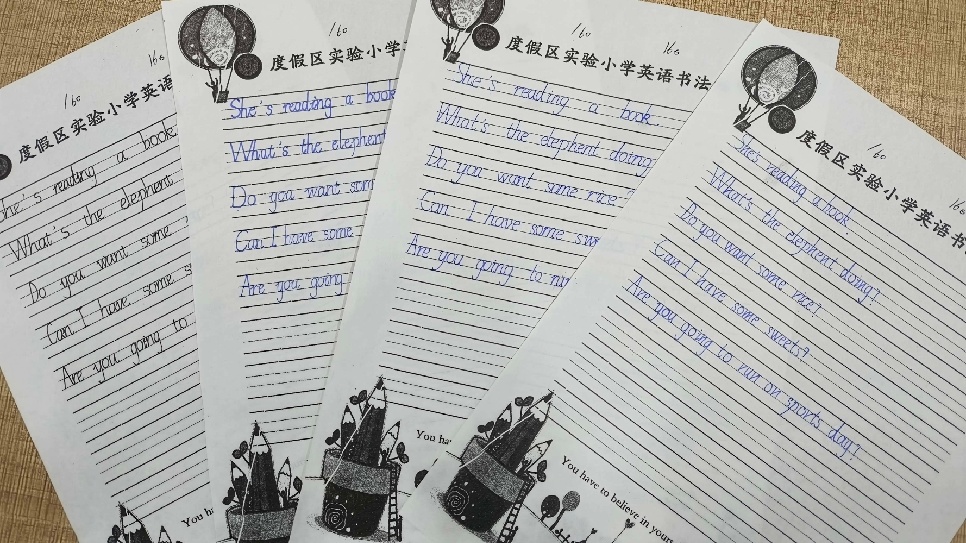 160
160
度假区实验小学英语
She's reading a book
What's the elephent
Do you want some
Can I have some s
Are you going to
You ha
160
度假区实验小学
She's reading a book
What's the elephent
Do you want som
Can I have some
Are you going
160
160
度假区实验小学英语书法
She's reading a book
What's the elephent doing
Do you want some rice?
Can I have some swe
Are you going to run
You ha
160
160
度假区实验小学英语书
She's reading a book.
What's the elephent doing?
Do you want some rice?
Can I have some sweets?
Are you going to run on sports day?
You have to believe in yours